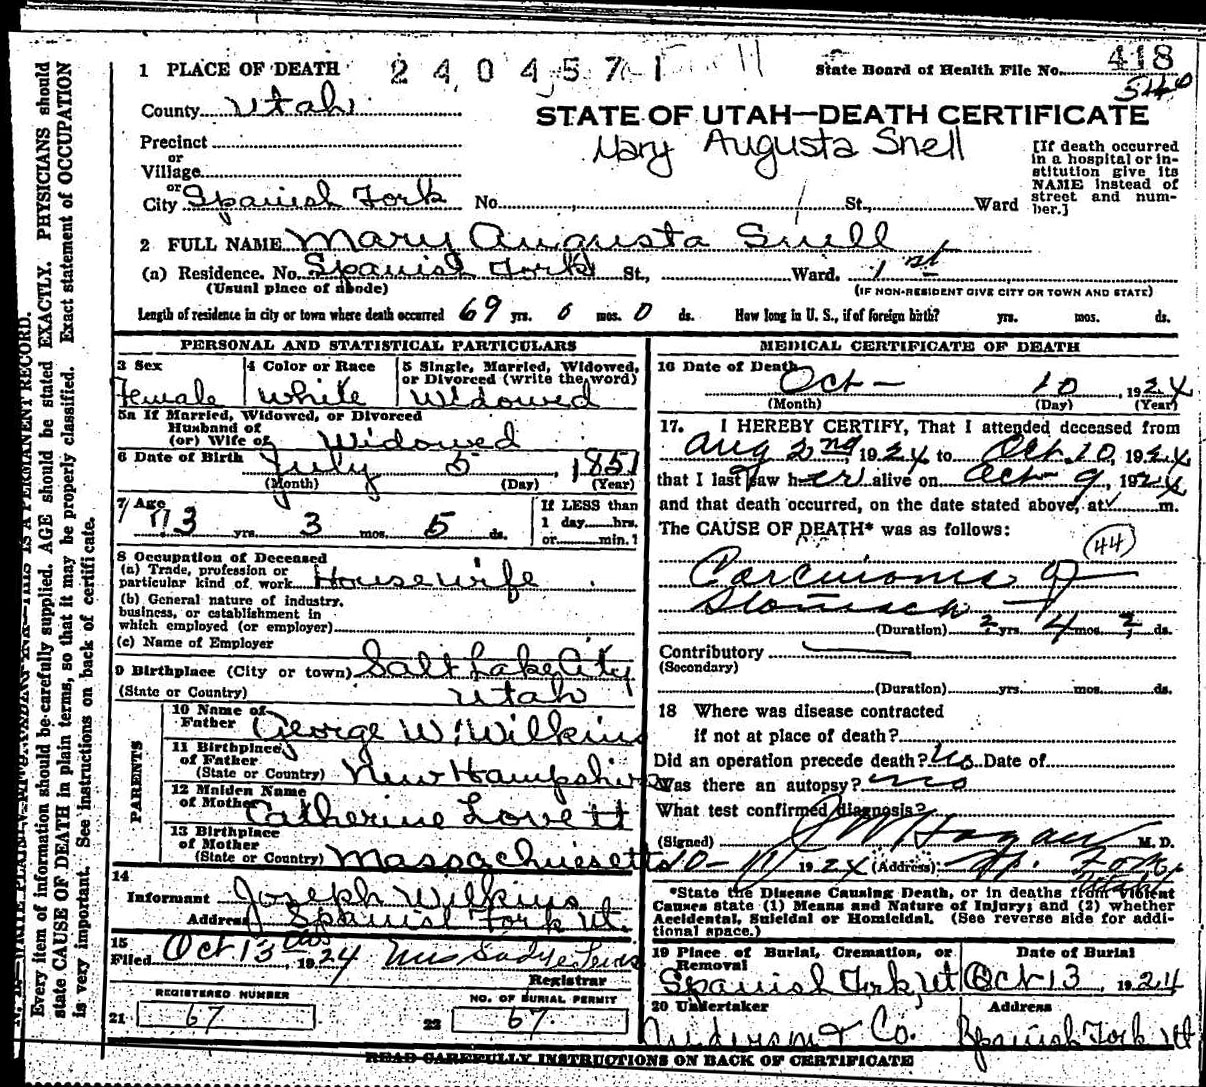 1 PLACE OF DEATH 2 4 0 4 5 7 1
State Board of Health File No. 418
546
County Utah
STATE OF UTAH—DEATH CERTIFICATE
Mary Augusta Snell
Precinct
or
Village
or
City Spanish Fork No. St., Ward
[If death occurred in a hospital or institution give its NAME instead of street and number.]
2 FULL NAME Mary Augusta Snell
(a) Residence. No. Spanish Fork St., Ward. 1st
(Usual place of abode) (IF NON-RESIDENT GIVE CITY OR TOWN AND STATE)
Length of residence in city or town where death occurred 69 yrs. 0 mos. 0 ds. How long in U. S., if of foreign birth? yrs. mos. ds.
PERSONAL AND STATISTICAL PARTICULARS
3 Sex Female
4 Color or Race White
5 Single, Married, Widowed, or Divorced (write the word) Widowed
5a If Married, Widowed, or Divorced
Husband of
(or) Wife of Widowed
6 Date of Birth July 5, 1851
(Month) (Day) (Year)
7 Age 73 yrs. 3 mos. 5 ds.
If LESS than
1 day hrs.
or min.?
8 Occupation of Deceased
(a) Trade, profession or
particular kind of work Housewife
(b) General nature of industry,
business, or establishment in
which employed (or employer)
(c) Name of Employer
9 Birthplace (City or town) Salt Lake City
(State or Country) Utah
PARENTS
10 Name of
Father George W. Wilkins
11 Birthplace
of Father
(State or Country) New Hampshire
12 Maiden Name
of Mother Catherine Lovett
13 Birthplace
of Mother
(State or Country) Massachusetts
14
Informant Joseph Wilkins
Address Spanish Fork Ut.
15
Filed Oct 13, 1924 Mrs Sadye
Registrar
REGISTERED NUMBER
21 67
NO. OF BURIAL PERMIT
22 67
MEDICAL CERTIFICATE OF DEATH
16 Date of Death Oct - 10, 1924
(Month) (Day) (Year)
17. I HEREBY CERTIFY, That I attended deceased from
Aug 2nd, 1924 to Oct. 10, 1924
that I last saw her alive on Oct 9, 1924
and that death occurred, on the date stated above, at m.
The CAUSE OF DEATH* was as follows:
44
Carcinoma of
Stomach
(Duration) 2 yrs. 4 mos. 2 ds.
Contributory
(Secondary)
(Duration) yrs. mos. ds.
18 Where was disease contracted
if not at place of death?
Did an operation precede death? No Date of
Was there an autopsy? no
What test confirmed diagnosis?
(Signed) J W Hagan M. D.
10-11 1924 (Address) Sp. Fork
*State the Disease Causing Death, or in deaths from Violent
Causes state (1) Means and Nature of Injury; and (2) whether
Accidental, Suicidal or Homicidal. (See reverse side for addi-
tional space.)
19 Place of Burial, Cremation, or
Removal
Spanish Fork, Ut
Date of Burial
Oct 13, 1924
20 Undertaker
Anderson & Co.
Address
Spanish Fork Ut
READ CAREFULLY INSTRUCTIONS ON BACK OF CERTIFICATE
Every item of information should be carefully supplied. AGE should be stated EXACTLY. PHYSICIANS should
state CAUSE OF DEATH in plain terms, so that it may be properly classified. Exact statement of OCCUPATION
is very important. See instructions on back of certificate.